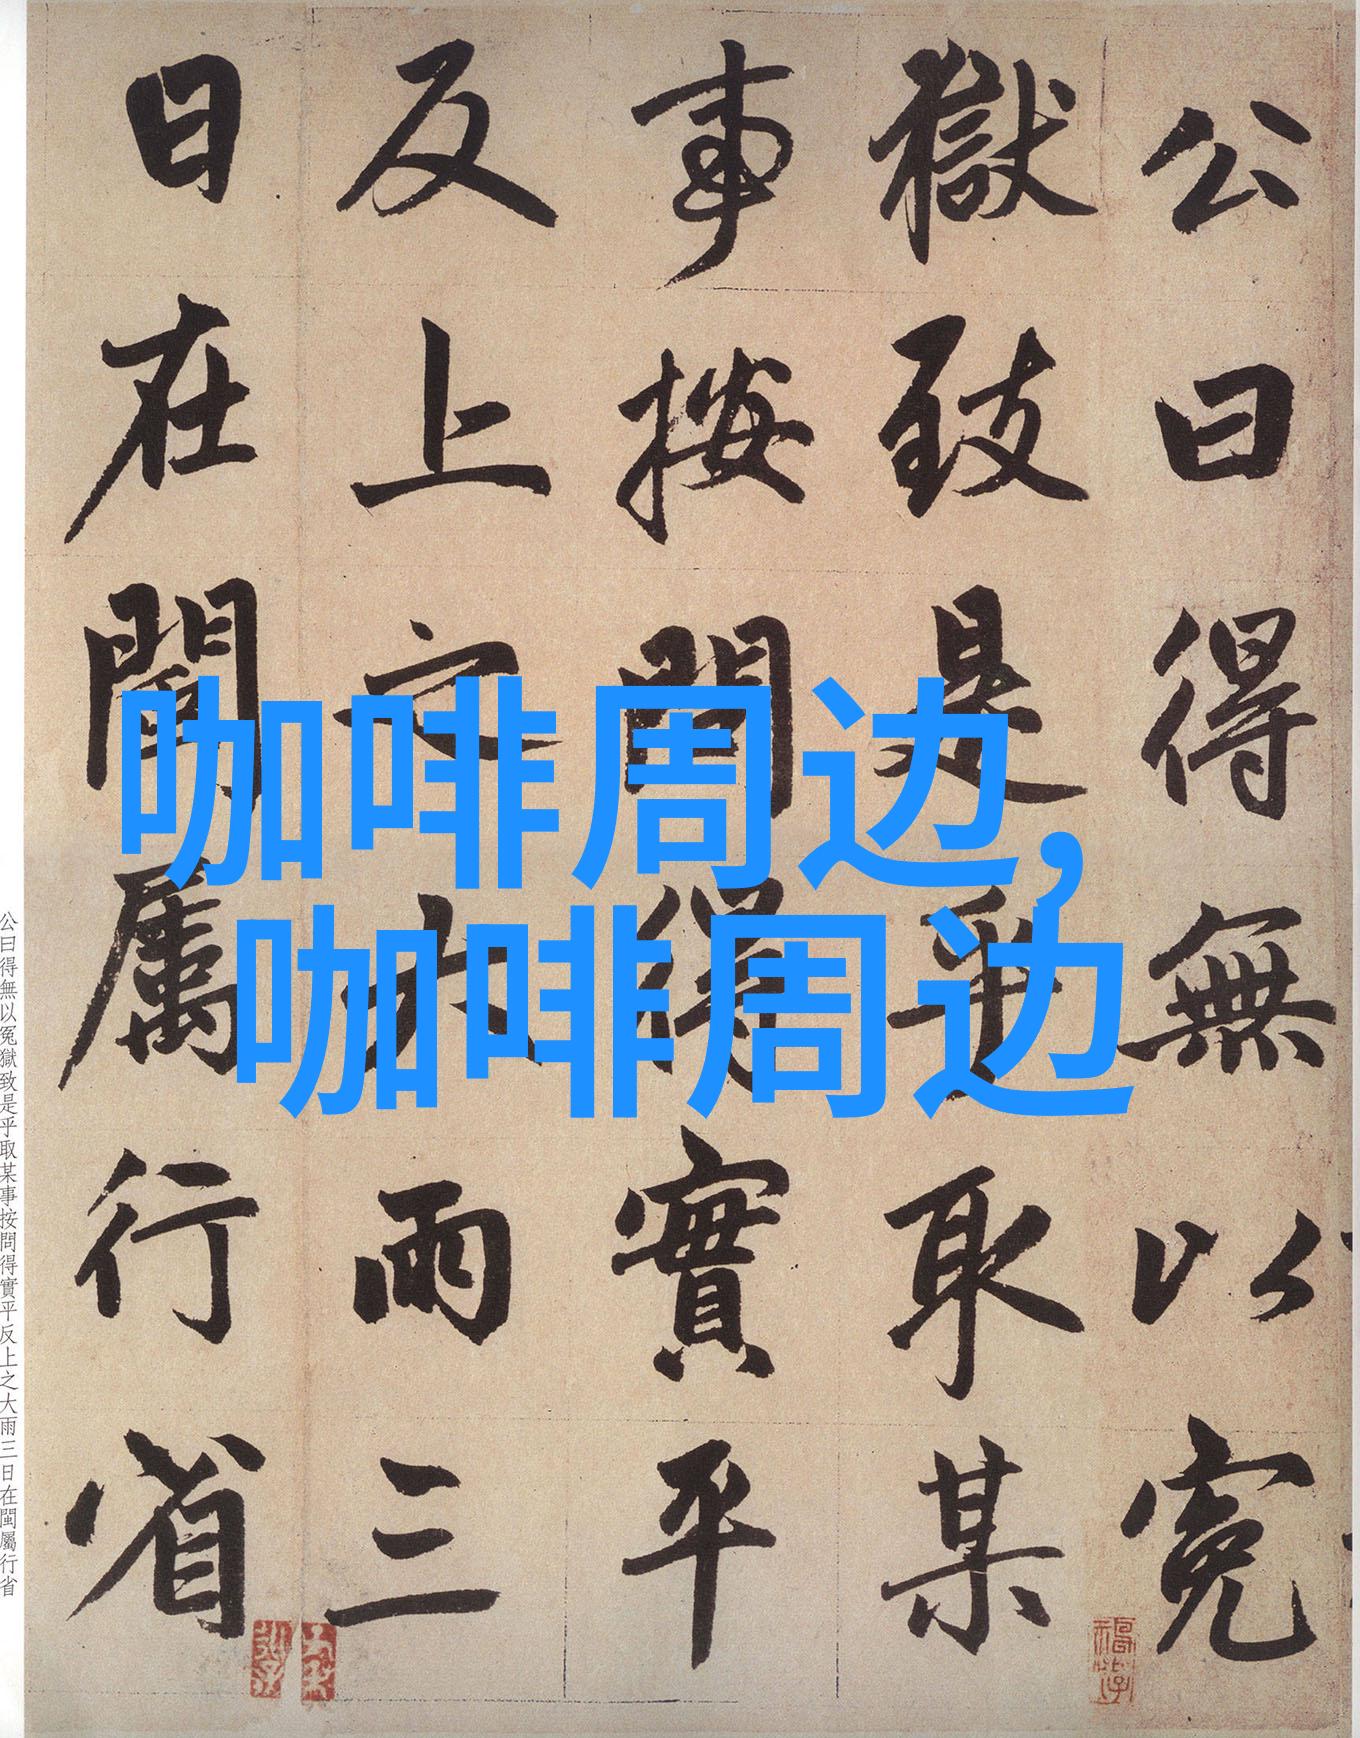 公曰得無以冤
獄致是乎取某
事按問得實平
反上之大雨三
日在閩屬行省
咖啡周边,
咖啡周边
公曰得無以冤獄致是乎取某事按問得實平反上之大雨三日在閩屬行省